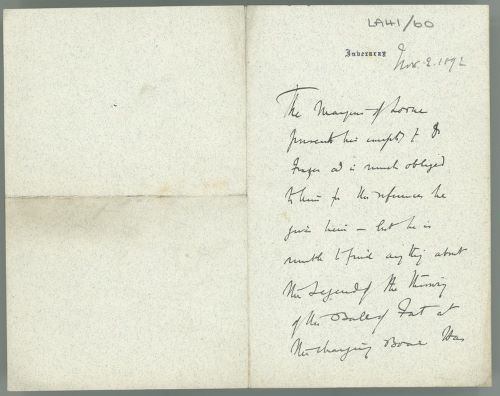 LA41/60
Inveraray
Nov. 2. 1892
The Marquis of Lorne
presents his compts to Dr
Fraser and is much obliged
to him for the references he
gives him — but he is
unable to find anything about
the Legend of the throwing
of the Ball of Fat at
the charging Boar. Was